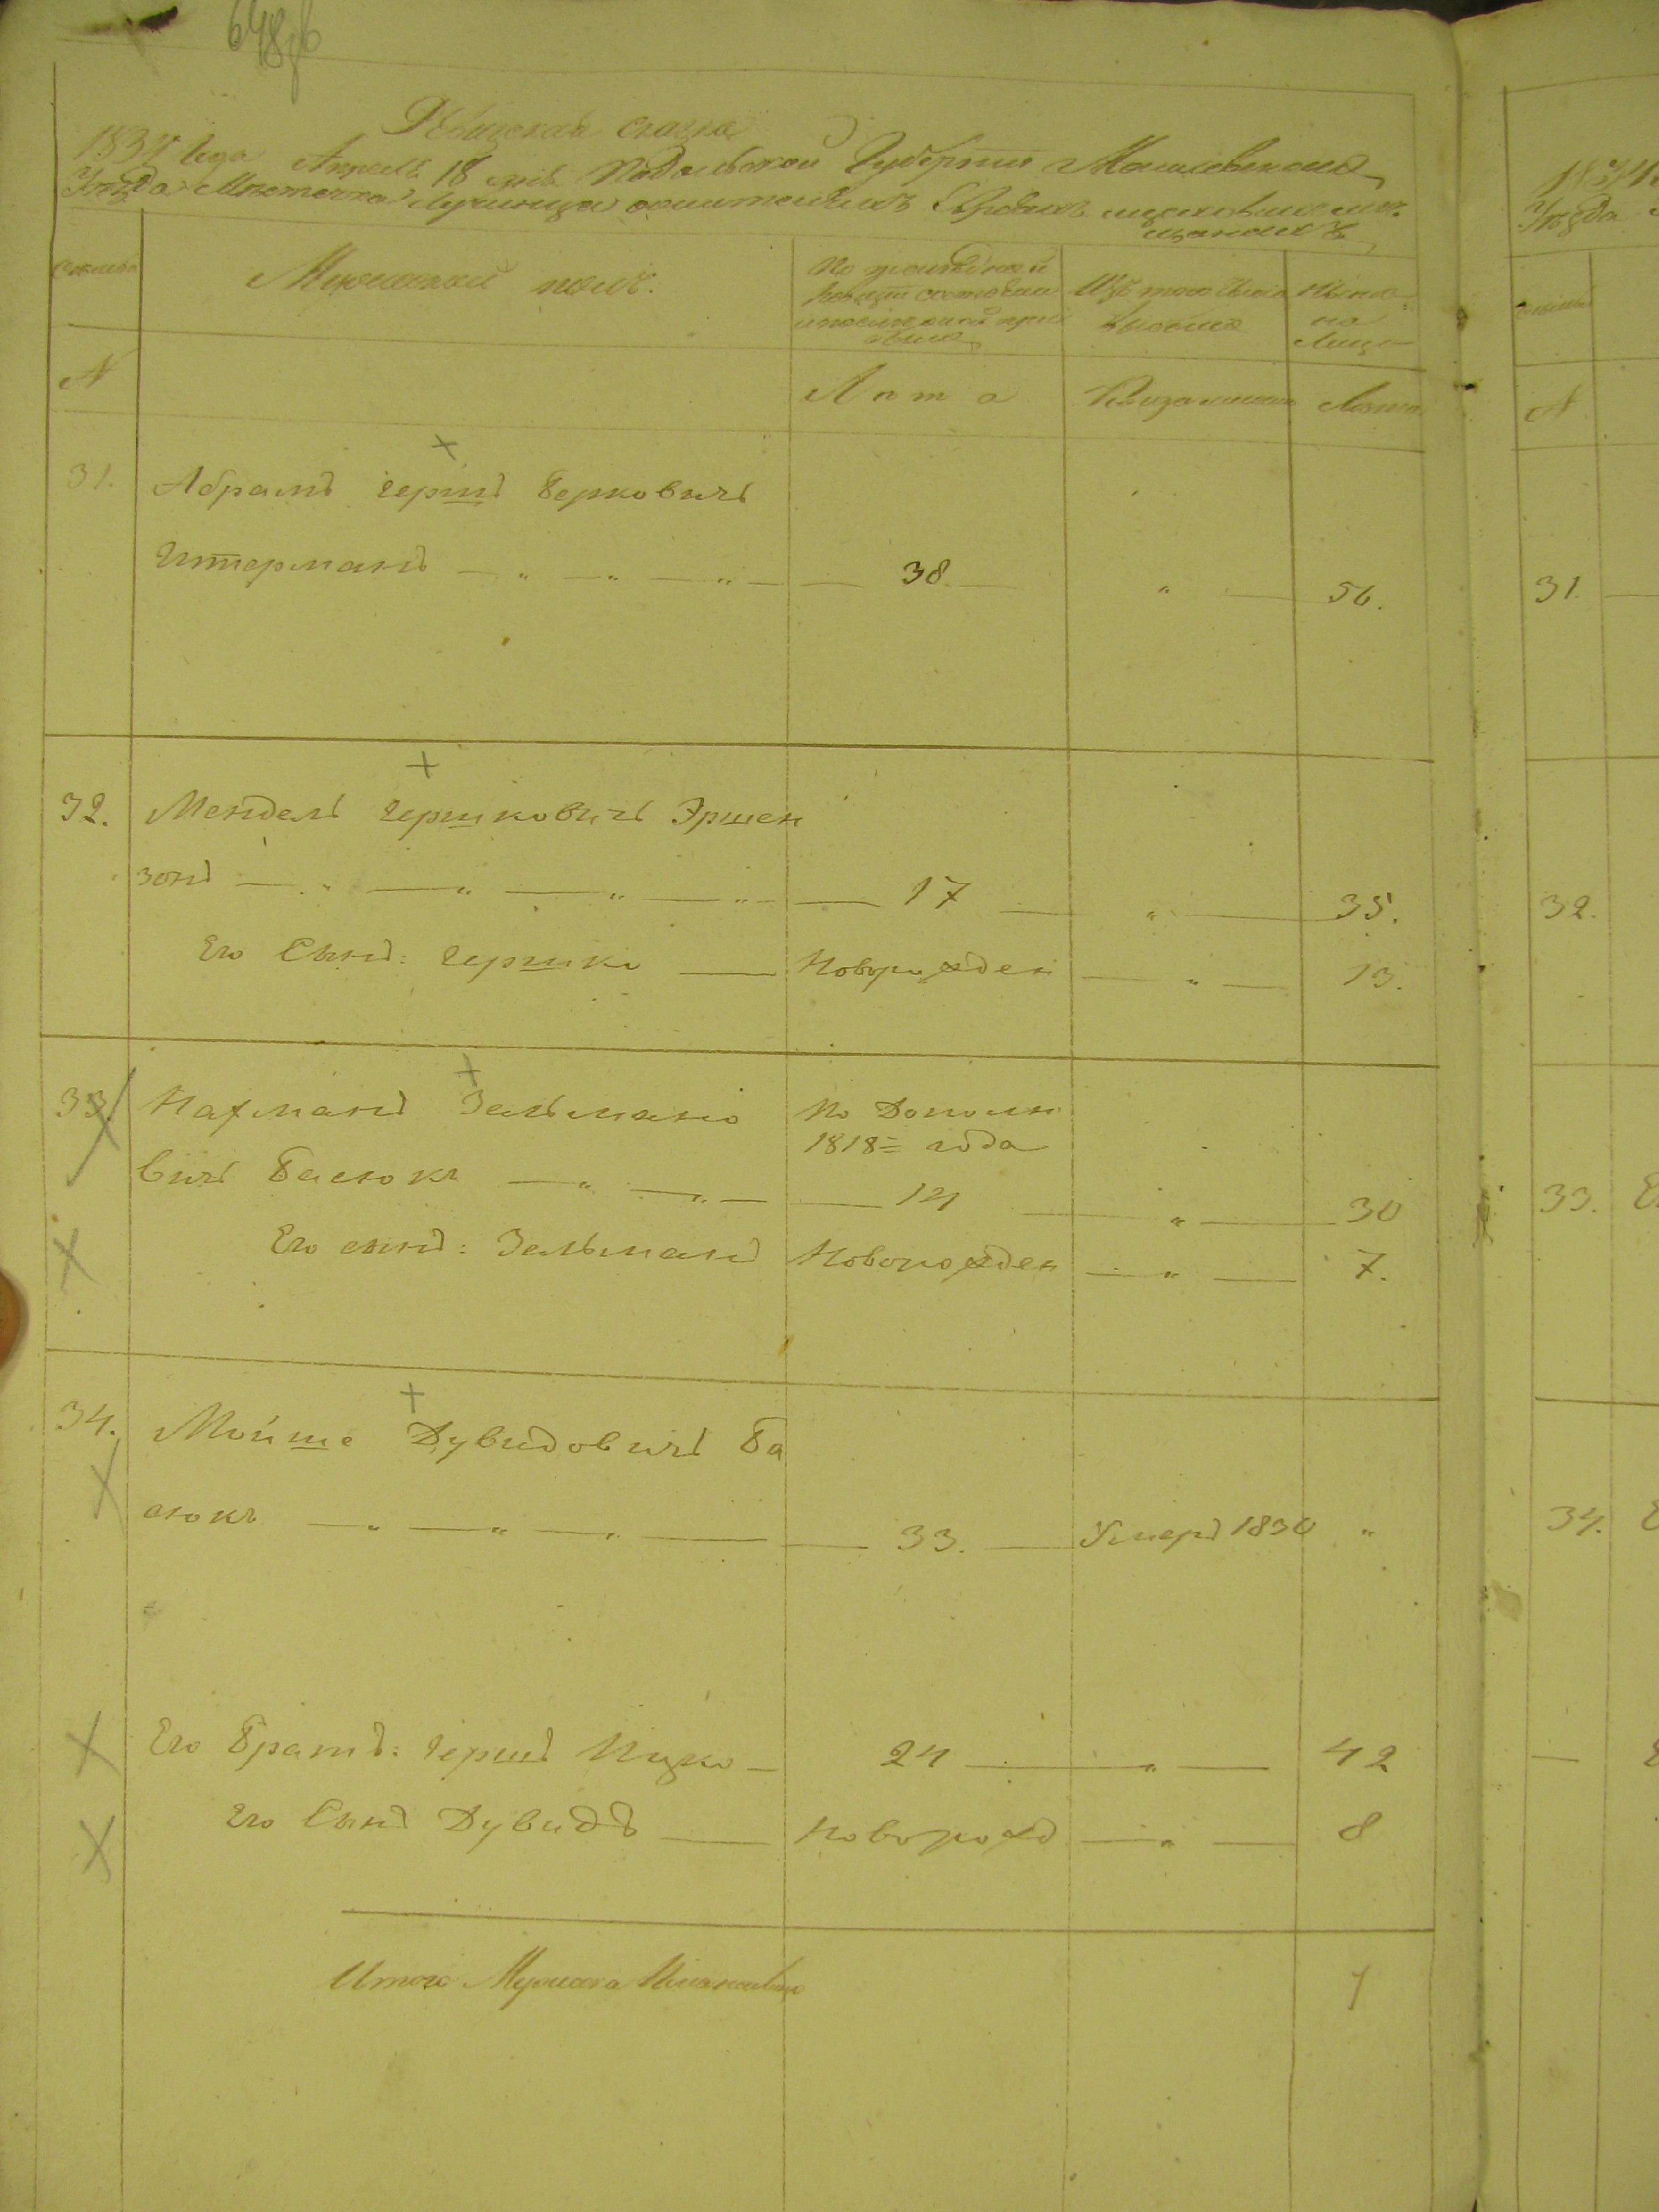 648об
Ревизская сказка
1834 года Апреля 18 дня Подольской Губернии Могилевского
Уезда Местечка Лучинца о состоящихъ Евреяхъ
мещанахъ
Мужеской полъ.
По последней ревизии состояли
Изъ того числа выбыло
Ныне на лицо
№
Лета
Когда именно
Лета
31. Абрамъ Гершъ Берковичъ
Итерманъ — " — " — " — 38 — " — 56.
32. Мендель Гершковичъ Эршен
зонъ — " — " — " — " — 17 — " — 35.
Его Сынъ: Гершко — Новорожден — " — 13.
33. Нахманъ Зельмано
вичъ Басюкъ — " — " —
по Дополн
1818= года
14 — " — 30
Его сынъ: Зельманъ Новорожден — " — 7.
34. Мойше Дувидовичъ Ба
сюкъ — " — " — " — 33. — Умеръ 1830 "
Его Братъ: Гершъ Ицко — 24 — " — 42
Его Сынъ Дувидъ — Новорожд — " — 8
Итого Мужеска Пола налицо 7
1834
Уезда
№
31
32.
33.
34.